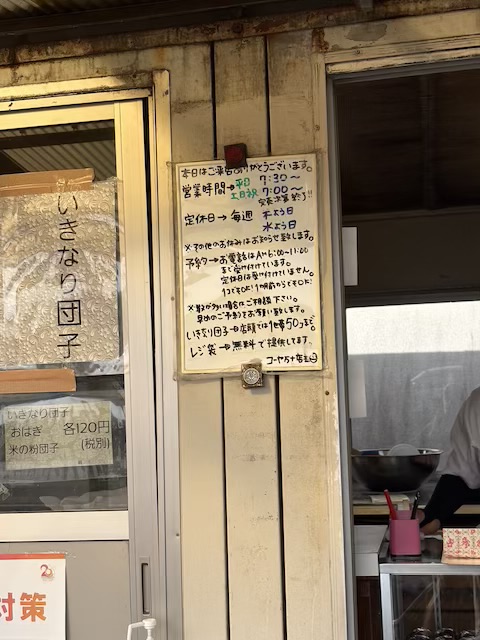 いきなり団子
いきなり団子
おはぎ 各120円
米の粉団子 (税別)
対策
本日はご来店ありがとうございます。
営業時間→平日 7:30〜
土日祝 7:00〜
完売次第終了!!
定休日→毎週 火よう日
水よう日
※その他のお休みはお知らせ致します。
予約→お電話はAM6:00〜11:00
まで受け付けています。
定休日は受け付けていません。
1コでもOK!1ヶ月前からでもOK!
※数が多い場合はご相談下さい。
早めのご予約をお願い致します。
いきなり団子→店頭では1他帯50コまで。
レジ袋→無料で提供してます。